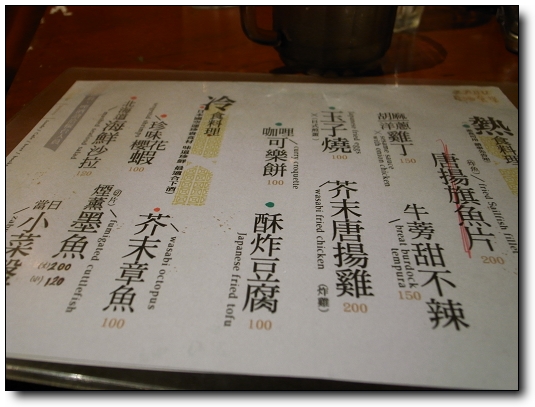 熱食料理
唐揚旗魚片
fried Sailfish fillet
200
牛蒡甜不辣
beat burdock tempura
150
胡麻洋蔥雞丁
150
芥末唐揚雞 (炸雞)
wasabi fried chicken
200
玉子燒
100
咖哩可樂餅
curry croquette
100
酥炸豆腐
Japanese fried tofu
100
冷食料理
珍味櫻花蝦
100
芥末章魚
wasabi octopus
100
北海道海鮮沙拉
150
煙薰墨魚 (切片)
fumigated cuttlefish
當日小菜盤
200
120